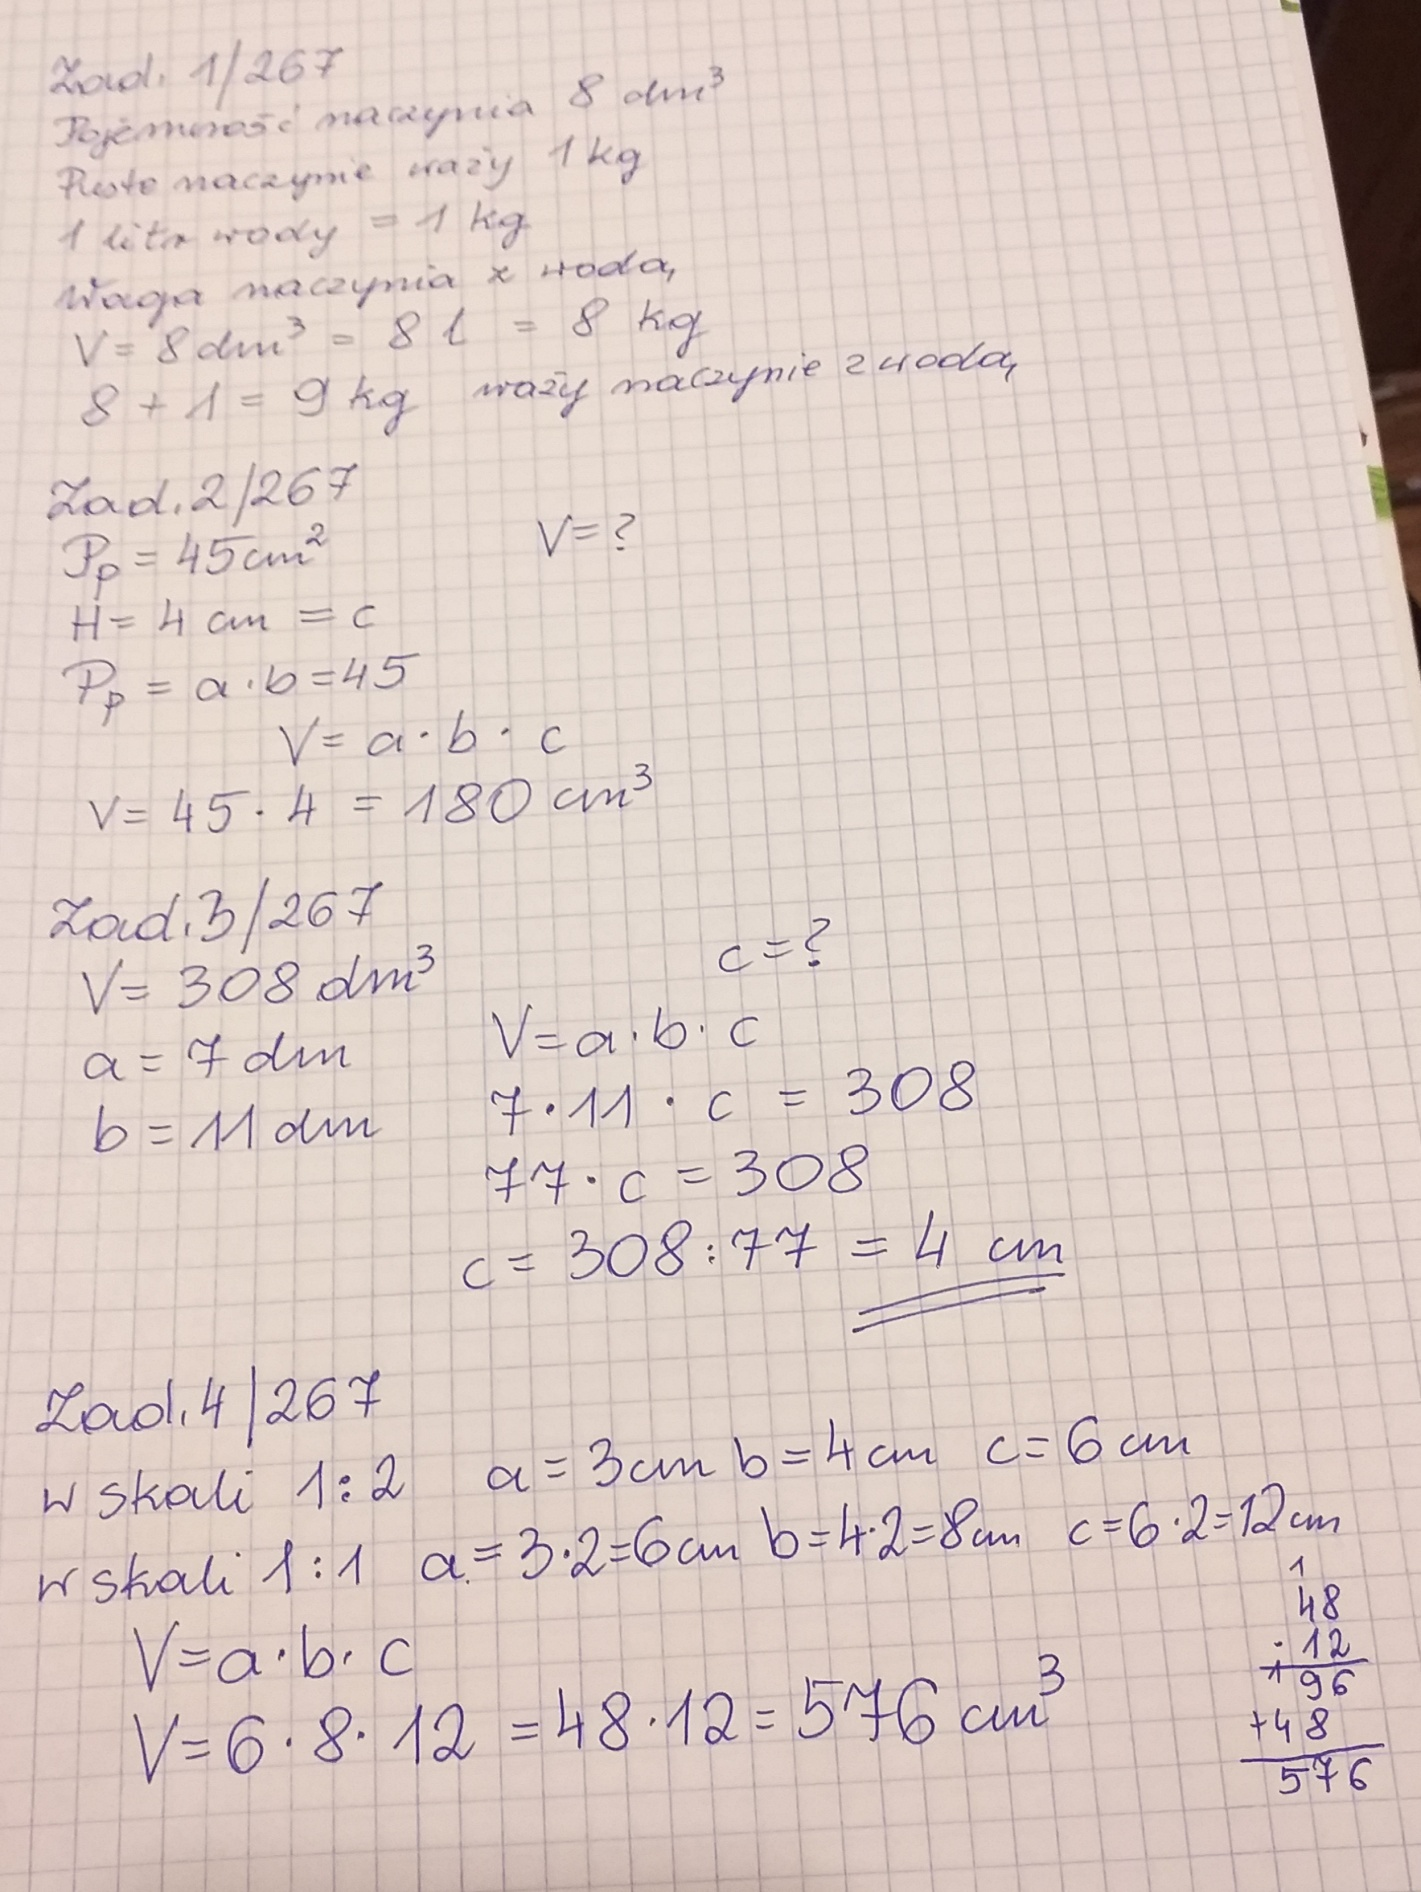 Zad. 1/267
Pojemność naczynia 8 dm³
Puste naczynie waży 1 kg
1 litr wody = 1 kg
Waga naczynia z wodą
V = 8 dm³ = 8 l = 8 kg
8 + 1 = 9 kg waży naczynie z wodą
Zad. 2/267
Pp = 45 cm² V = ?
H = 4 cm = c
Pp = a · b = 45
V = a · b · c
V = 45 · 4 = 180 cm³
Zad. 3/267
V = 308 dm³ c = ?
a = 7 dm V = a · b · c
b = 11 dm 7 · 11 · c = 308
77 · c = 308
c = 308 : 77 = 4 cm
Zad. 4/267
w skali 1 : 2 a = 3 cm b = 4 cm c = 6 cm
w skali 1 : 1 a = 3 · 2 = 6 cm b = 4 · 2 = 8 cm c = 6 · 2 = 12 cm
V = a · b · c
V = 6 · 8 · 12 = 48 · 12 = 576 cm³
1
48
· 12
1 96
+ 48
576